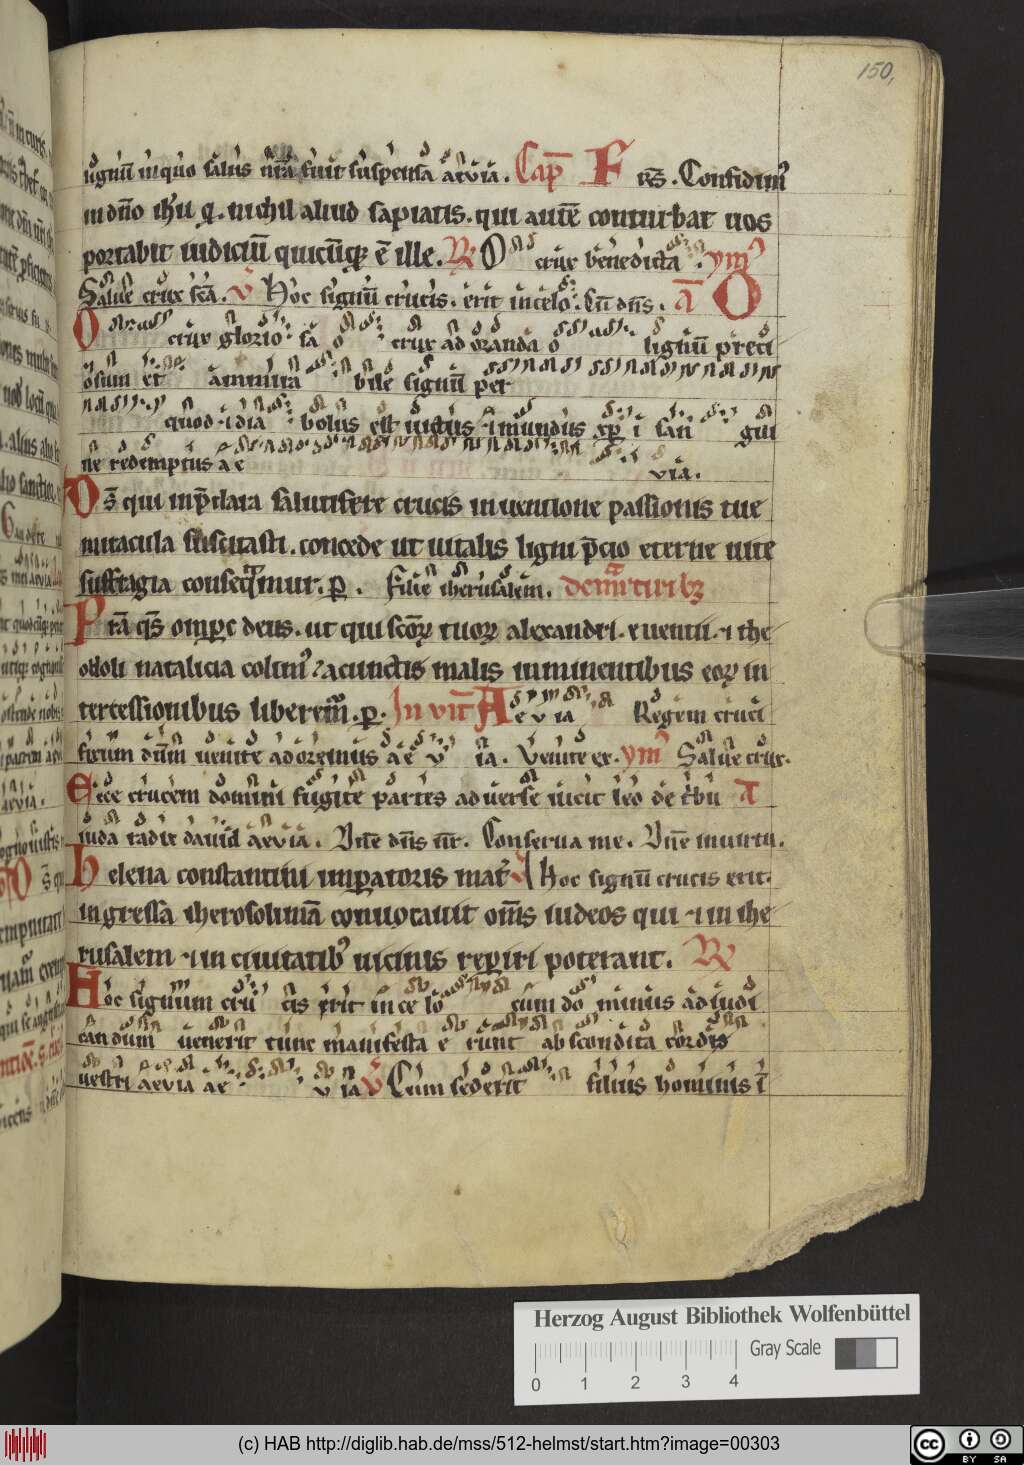 150,
lignū in quo salus nr̄a fuit suspensa aevia. Cap̄ Frs̄. Confidim᷒
in dn̄o ih̄u q. nichil aliud sapiatis. qui autē conturbat uos
portabit iudiciū quicūqꝫ ē ille. ℟ O crux benedicta. ym᷒
Salue crux sc̄a. v̄ Hoc signū crucis. erit in celo. cū dn̄s. ā O
O crux glorio sa o crux adoranda o lignū preci
osum et ammira bile signū per
quod ⁊ dia bolus est uictus ⁊ mundus xp̄ i san gui
ne redemptus a e via.
Ds̄ qui in p̄clara salutifere crucis inuentione passionis tue
miracula suscitasti. concede ut uitalis ligni p̄cio eterne uite
suffragia consequamur. ꝑ. Filie iherusalem. de mr̄turibꝫ
Prā qs̄ omp̄c deus. ut qui scōꝝ tuoꝝ alexandri. euentii. ⁊ the
odoli natalicia colim᷒ / a cunctis malis inminentibus eoꝝ in
tercessionibus liberem᷒. ꝑ. In vit̄ Aevia Regem cruci
fixum dn̄m uenite adoremus a e v ia. Venite ex. ym᷒ Salue crux.
Ecce crucem domini fugite partes aduerse uicit leo de t̄bu ā
iuda radix dauid aevia. Dn̄e dn̄s nr̄. Conserua me. Dn̄e in uirtu.
Helena constantini imperatoris mat̄ v̄ Hoc signū crucis erit.
ingressa iherosolimā conuocauit om̄s iudeos qui ⁊ in ihe
rusalem ⁊ in ciuitatib᷒ uicinis reperiri poterant. ℟
Hoc signum cru cis erit in ce lo cum do minus ad iudi
candum uenerit tunc manifesta e runt abscondita cordis
uestri aevia ae v ia v̄ Cum sederit filius hominis ī
Herzog August Bibliothek Wolfenbüttel
0 1 2 3 4 Gray Scale
(c) HAB http://diglib.hab.de/mss/512-helmst/start.htm?image=00303
cc BY SA